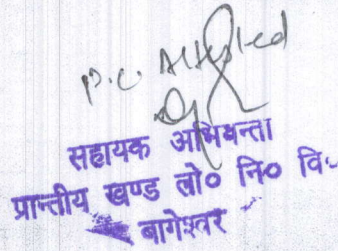 P.C Attested
सहायक अभियन्ता
प्रान्तीय खण्ड लो० नि० वि०
बागेश्वर